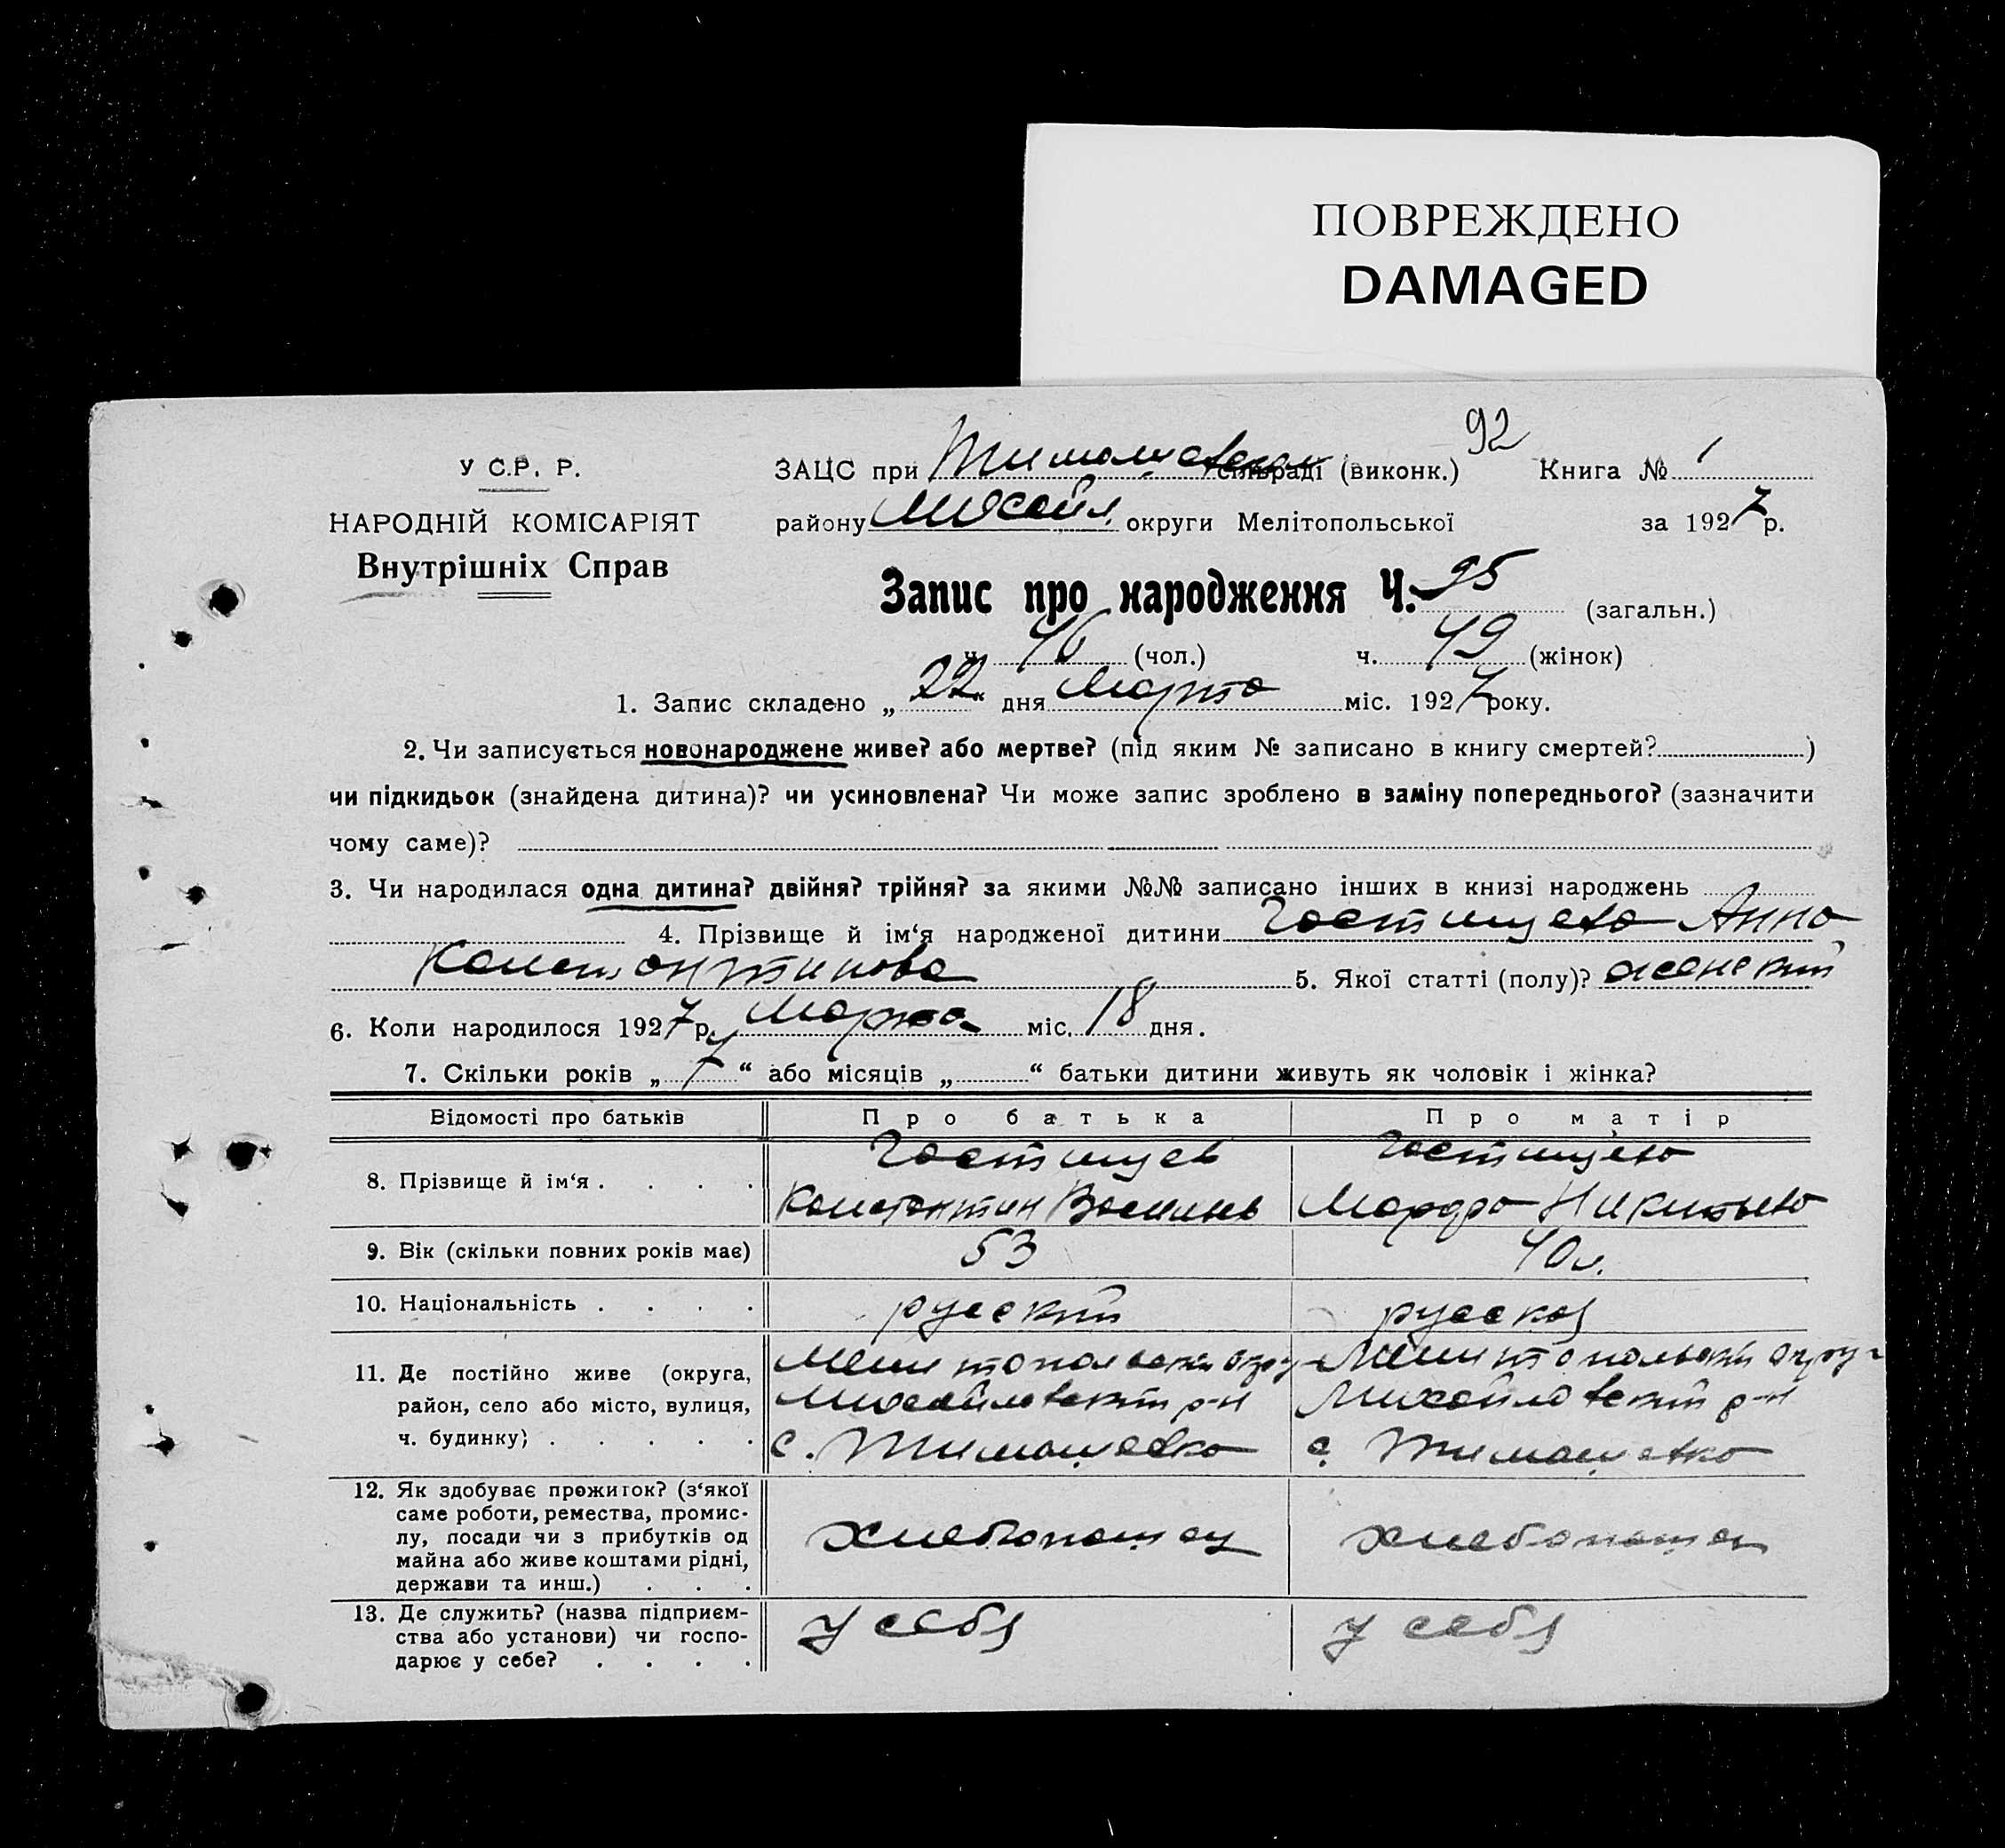 ПОВРЕЖДЕНО
DAMAGED
92
У С.Р. Р.
ЗАЦС при Тимошевском сільраді (виконк.) Книга № 1
НАРОДНІЙ КОМІСАРІЯТ
району Михайл. округи Мелітопольської за 1927 р.
Внутрішніх Справ
Запис про народження Ч. 95 (загальн.)
ч. 46 (чол.) ч. 49 (жінок)
1. Запис складено „22“ дня Марта міс. 1927 року.
2. Чи записується новонароджене живе? або мертве? (під яким № записано в книгу смертей? )
чи підкидьок (знайдена дитина)? чи усиновлена? Чи може запис зроблено в заміну попереднього? (зазначити
чому саме)?
3. Чи народилася одна дитина? двійня? трійня? за якими №№ записано інших в книзі народжень
4. Прізвище й ім‘я народженої дитини Гостищева Анна
Константинова 5. Якої статті (полу)? женский
6. Коли народилося 1927 р. Марта міс. 18 дня.
7. Скільки років „7“ або місяців „ “ батьки дитини живуть як чоловік і жінка?
Відомості про батьків Про батька Про матір
8. Прізвище й ім‘я . . . . Гостищев Гостищева
Константин Васильев Марфа Никитьева
9. Вік (скільки повних років має) 53 40 л.
10. Національність . . . . русский русская
11. Де постійно живе (округа, Мелитопольский округ Мелитопольский округ
район, село або місто, вулиця, Михайловский р-н Михайловский р-н
ч. будинку) . . . . . с. Тимашевка с. Тимашевка
12. Як здобуває прожиток? (з‘якої
саме роботи, ремества, промис-
лу, посади чи з прибутків од хлебопашец хлебопашец
майна або живе коштами рідні,
держави та инш.) . . .
13. Де служить? (назва підприєм-
ства або установи) чи госпо- у себя у себя
дарює у себе? . . . .